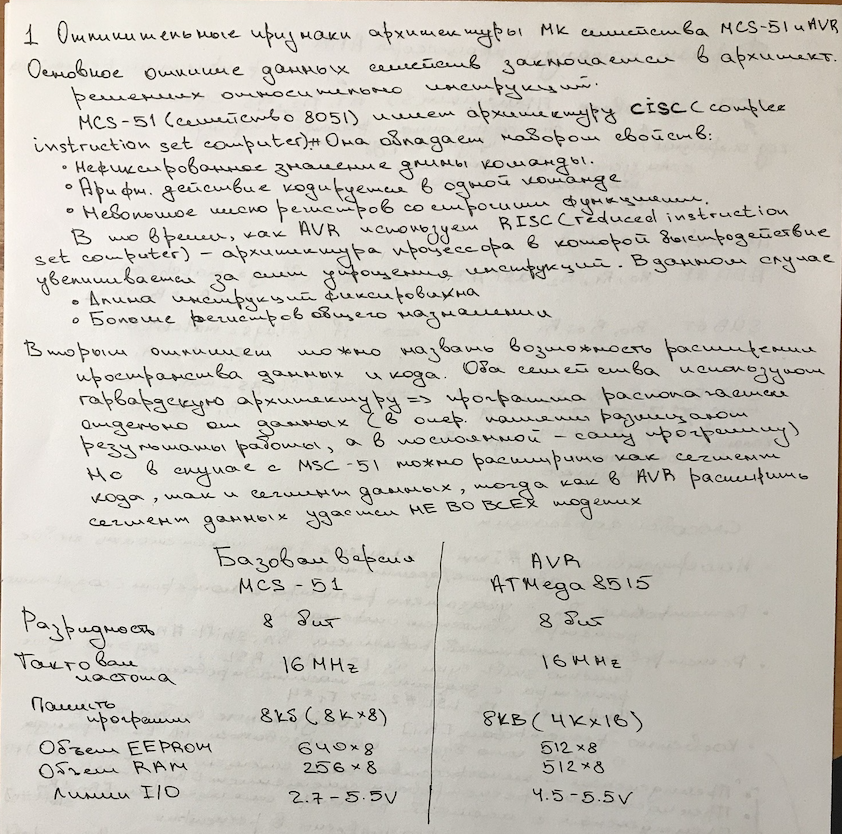 1 Отличительные признаки архитектуры МК семейства MCS-51 и AVR
Основное отличие данных семейств заключается в архитект.
решениях относительно инструкций.
MCS-51 (семейство 8051) имеет архитектуру CISC (complex
instruction set computer) Она обладает набором свойств:
• Нефиксированное значение длины команды.
• Арифм. действие кодируется в одной команде
• Небольшое число регистров со строгими функциями.
В то время, как AVR использует RISC (reduced instruction
set computer) – архитектура процессора в которой быстродействие
увеличивается за счет упрощения инструкций. В данном случае
• Длина инструкций фиксирована
• Больше регистров общего назначения
Вторым отличием можно назвать возможность расширения
пространства данных и кода. Оба семейства используют
гарвардскую архитектуру => программа располагается
отдельно от данных (в опер. памяти размещают
результаты работы, а в постоянной – саму программу)
Но в случае с MSC-51 можно расширить как сегмент
кода, так и сегмент данных, тогда как в AVR расширить
сегмент данных удастся НЕ ВО ВСЕХ моделях
Базовая версия MCS-51 | AVR ATMega 8515
Разрядность 8 бит 8 бит
Тактовая частота 16 MHz 16 MHz
Память программ 8kб (8K×8) 8KB (4K×16)
Объем EEPROM 640×8 512×8
Объем RAM 256×8 512×8
Линии I/O 2.7-5.5V 4.5-5.5V